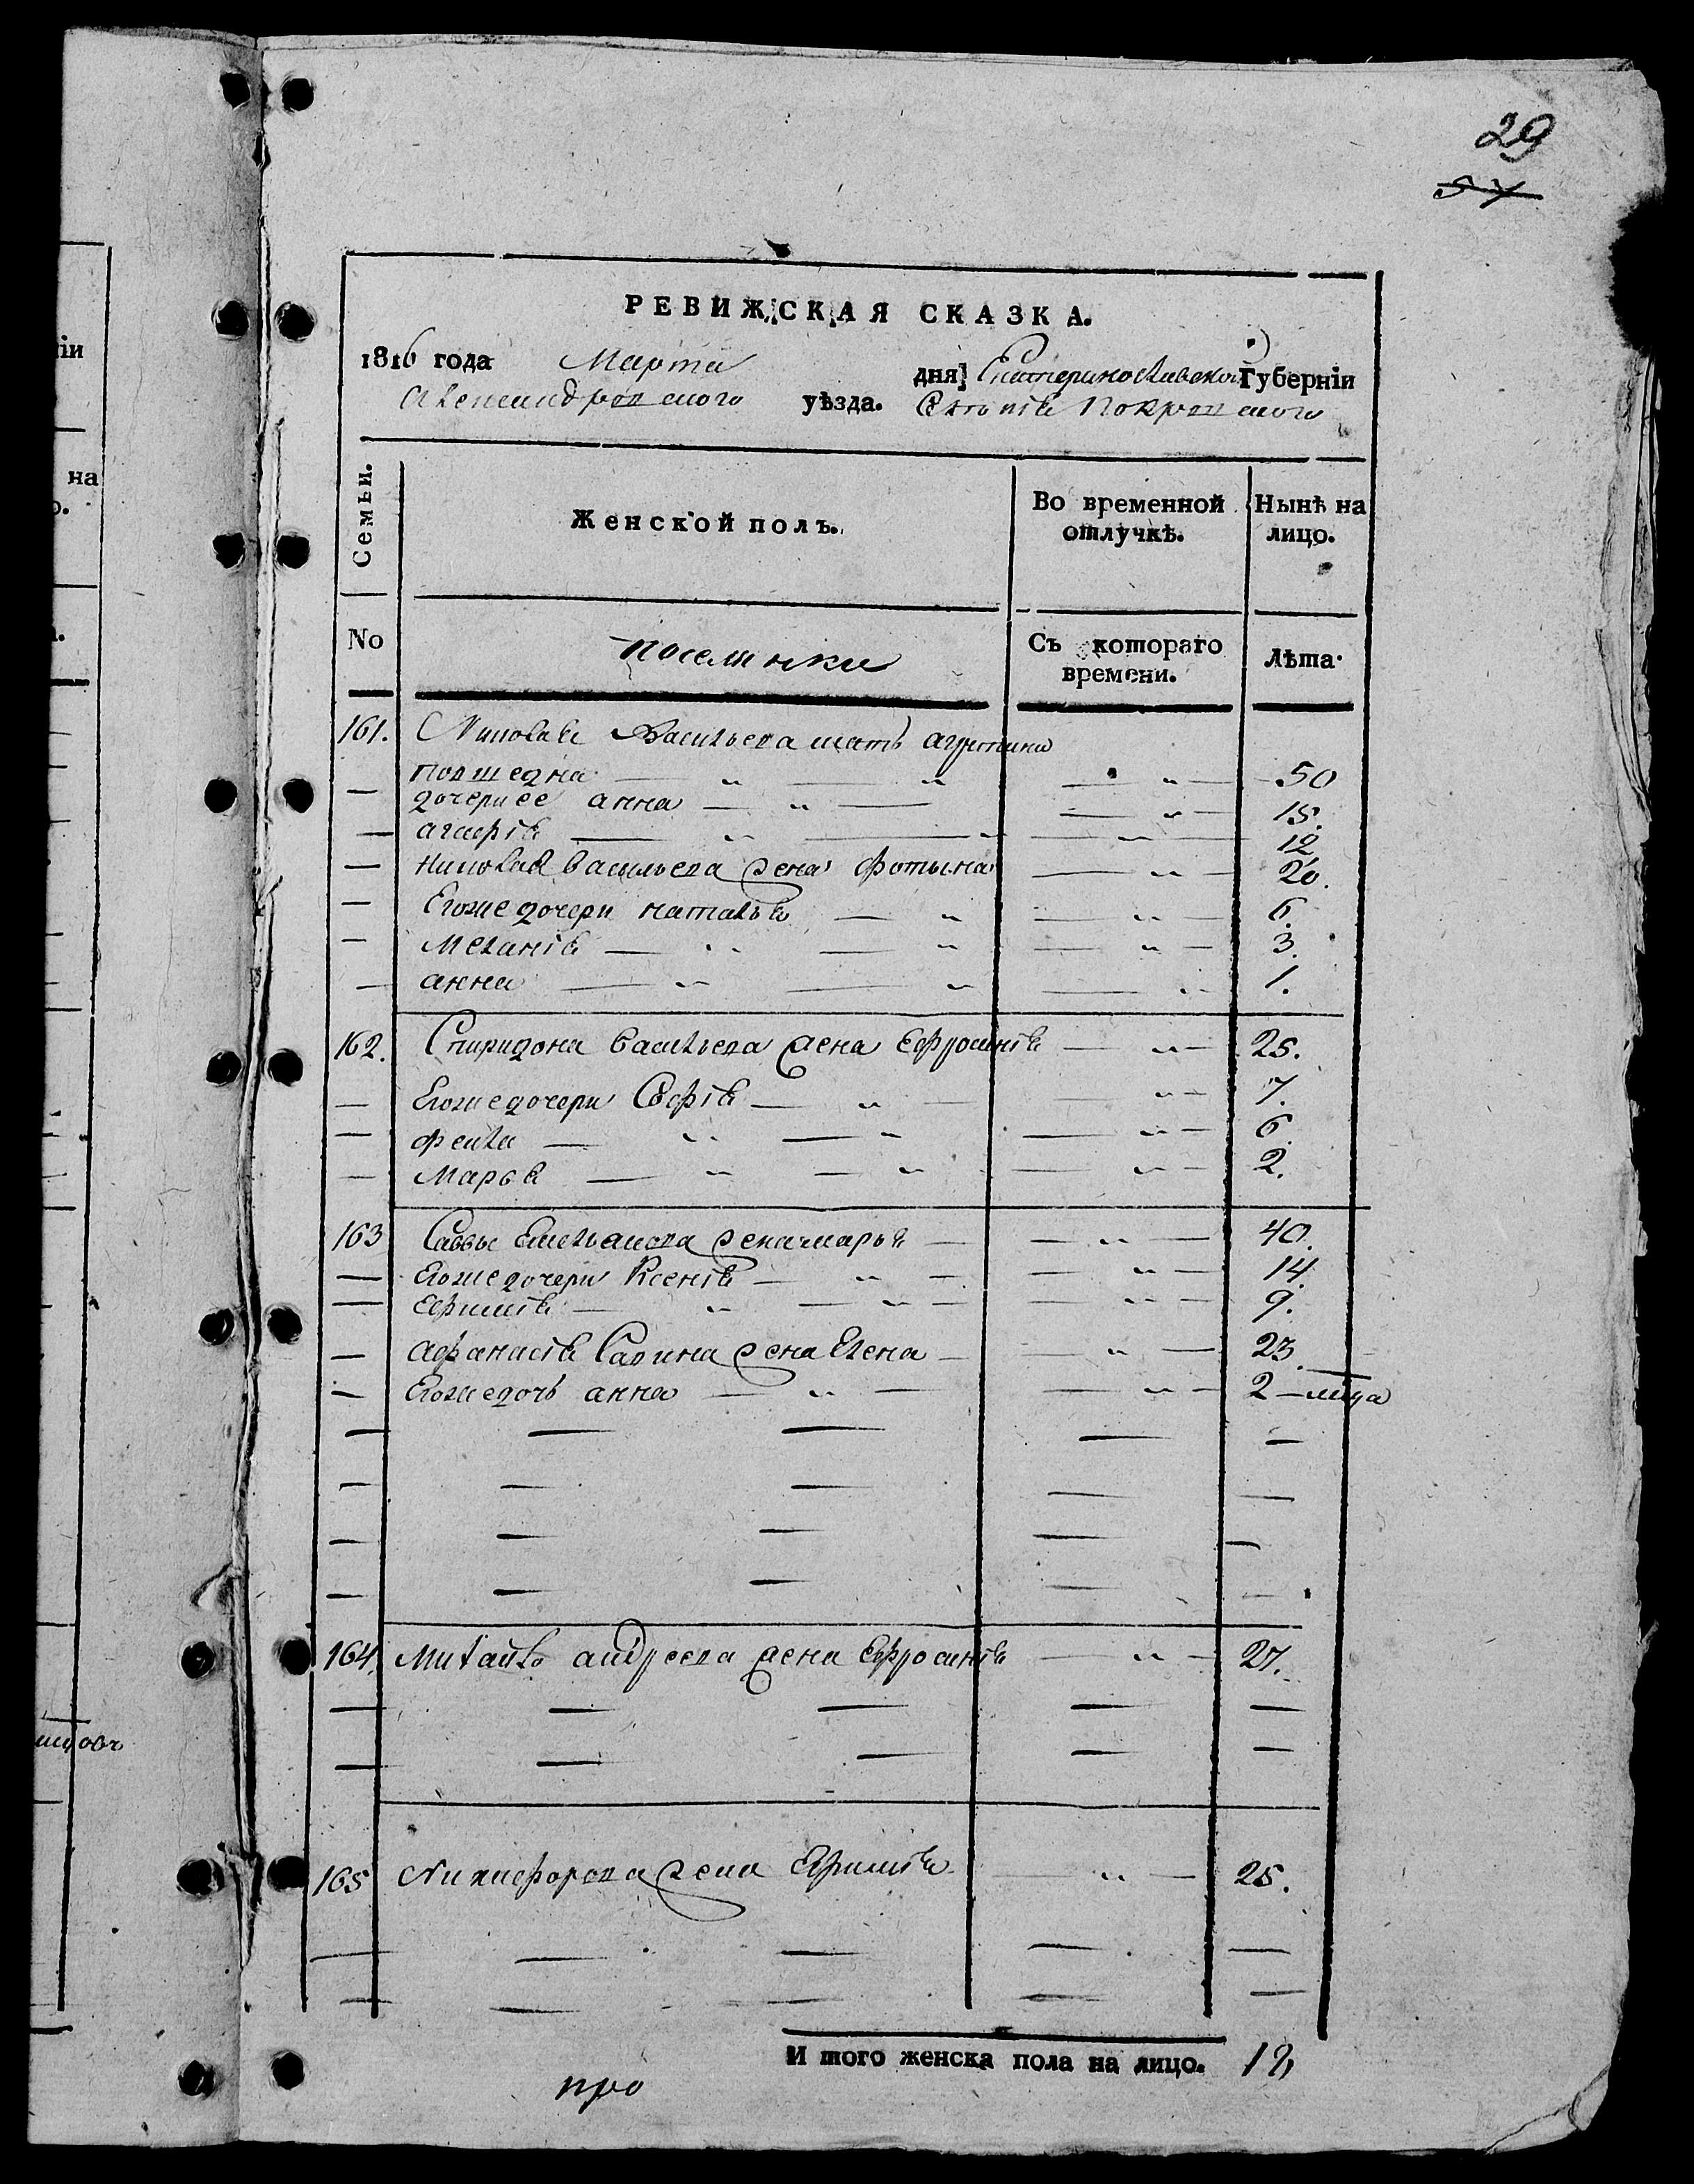 29
57
РЕВИЖСКАЯ СКАЗКА.
1816 года Марта дня Екатеринославской Губерніи
Александровскаго уѣзда. Селенія Покровскаго
Семьи.
Женской полъ.
Во временной отлучкѣ.
Нынѣ на лицо.
No
поселянки
Съ котораго времени.
Лѣта.
161. Николая Васильева мать агрипина
— " — " — " — 50
— дочери ее анна — " — — " — 15.
— агафія — " — — " — 12
— николая васильева жена фотына — " — 20.
— Егоже дочери наталья — " — " — 6.
— Меланія — " — " — " — 3.
— анна — " — " — " — 1.
162. Спиридона васильева жена Ефросинія — " — 25.
— Егоже дочери Софія — " — — " — 7.
— фекла — " — " — " — 6.
— Марья — " — " — " — 2.
163 Саввы Емельянова жена марья — — " — 40.
— Егоже дочери Ксенія — " — — " — 14.
— Ефимія — " — " — — " — 9.
— афанасія Савина жена Елена — — " — 23.
— Егоже дочь анна — " — — " — 2 —
164. Михайлы андреева жена Ефросинія — " — 27.
165 Никифорова жена Ефимія — " — 25.
И того женска пола на лицо. 18
про
іи
на
о.